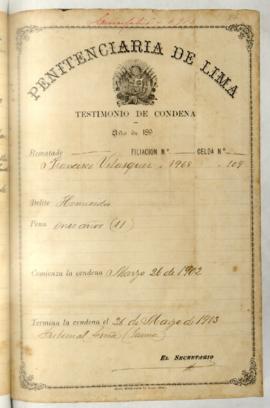 PENITENCIARIA DE LIMA
TESTIMONIO DE CONDENA
Año de 189
Rematado FILIACION Nº CELDA Nº
Francisco Velasquez 1968 109
Delito Homicidio
Pena once años (11)
Comienza la condena Marzo 26 de 1902
Termina la condena el 26 de Marzo de 1913
Tribunal Lima
EL SECRETARIO